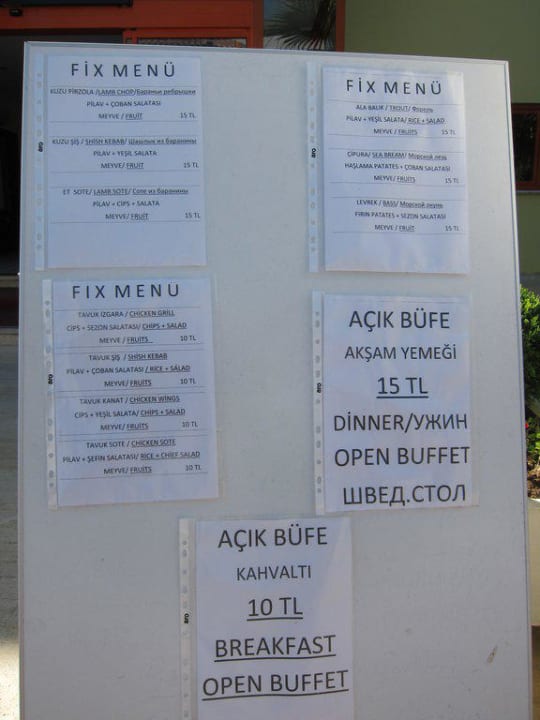 FİX MENÜ
KUZU PİRZOLA /LAMB CHOP/Бараньи ребрышки
PİLAV + ÇOBAN SALATASI
MEYVE/ FRUIT 15 TL
KUZU ŞİŞ / SHİSH KEBAB/ Шашлык из баранины
PİLAV + YEŞİL SALATA
MEYVE/ FRUIT 15 TL
ET SOTE/ LAMB SOTE/ Соте из баранины
PİLAV + CİPS + SALATA
MEYVE/ FRUIT 15 TL
FİX MENÜ
ALA BALIK / TROUT/ Форель
PİLAV + YEŞİL SALATA/ RICE + SALAD
MEYVE / FRUITS 15 TL
ÇİPURA/ SEA BREAM/ Морской лещ
HAŞLAMA PATATES + ÇOBAN SALATASI
MEYVE/ FRUIT 15 TL
LEVREK / BASS/ Морской окунь
FIRIN PATATES + SEZON SALATASI
MEYVE / FRUIT 15 TL
FİX MENÜ
TAVUK IZGARA / CHICKEN GRILL
CİPS + SEZON SALATASI/ CHIPS + SALAD
MEYVE/ FRUITS 10 TL
TAVUK ŞİŞ / SHISH KEBAB
PİLAV + ÇOBAN SALATASI / RICE + SALAD
MEYVE/ FRUITS 10 TL
TAVUK KANAT / CHICKEN WINGS
CİPS + YEŞİL SALATA/ CHIPS + SALAD
MEYVE/ FRUITS 10 TL
TAVUK SOTE / CHICKEN SOTE
PİLAV + ŞEFİN SALATASI/ RICE + CHIEF SALAD
MEYVE/ FRUITS 10 TL
AÇIK BÜFE
AKŞAM YEMEĞİ
15 TL
DİNNER/УЖИН
OPEN BUFFET
ШВЕД.СТОЛ
AÇIK BÜFE
KAHVALTI
10 TL
BREAKFAST
OPEN BUFFET